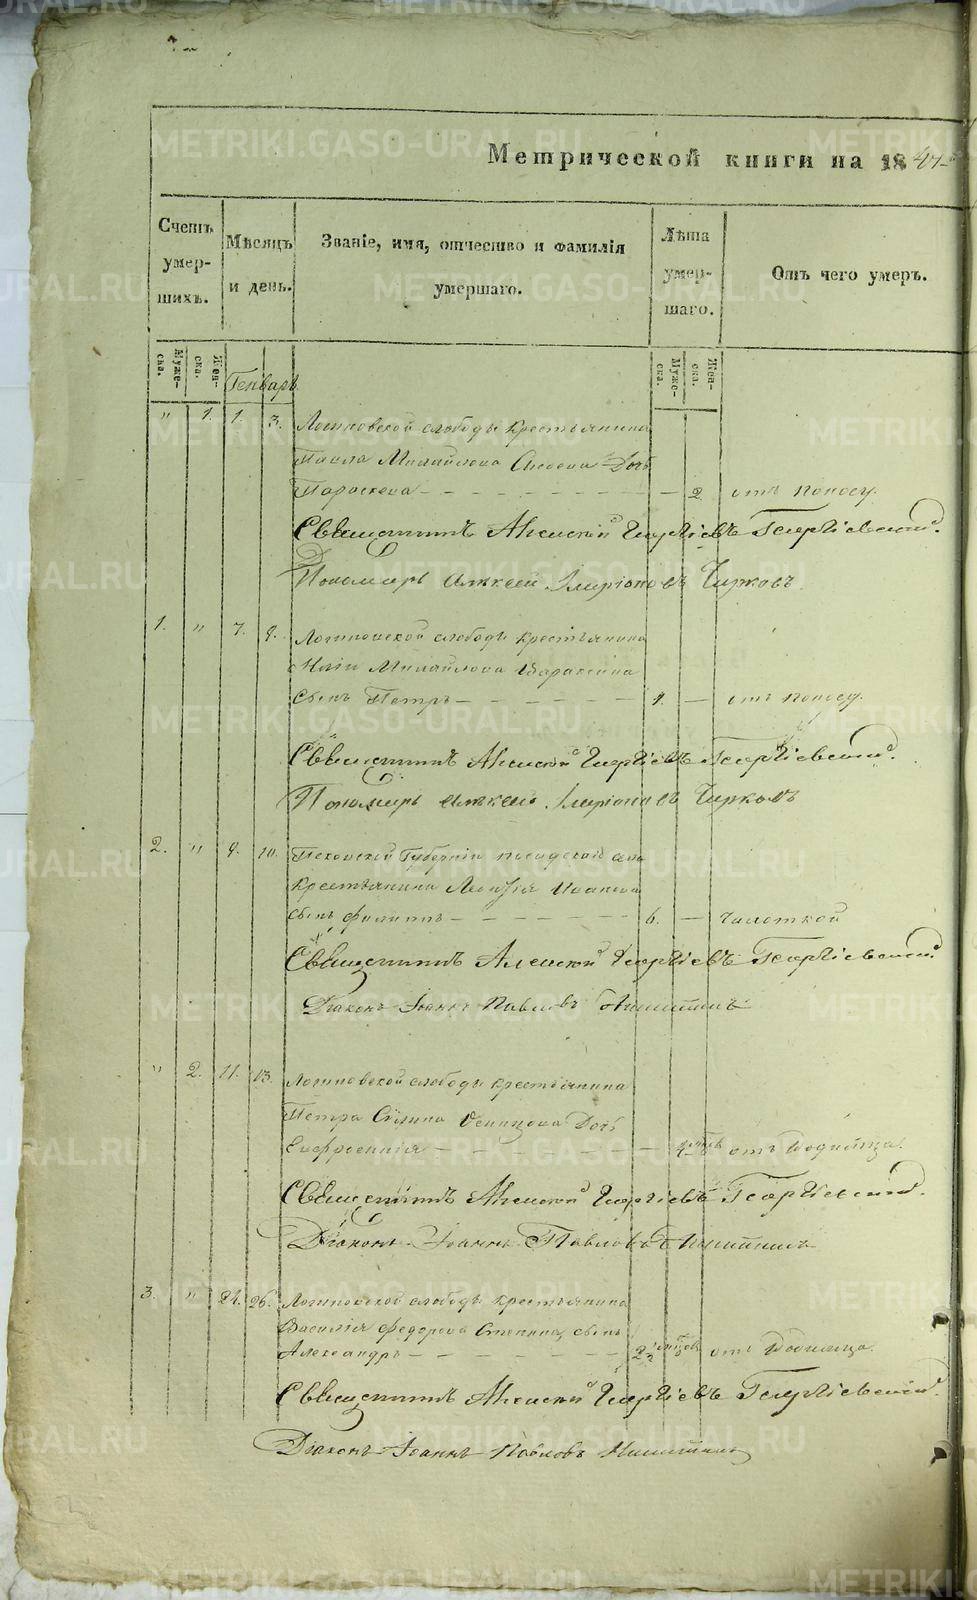 Метрической книги на 1847
Счетъ умершихъ.
Мѣсяцъ и день.
Званіе, имя, отчество и фамилія умершаго.
Лѣта умершаго.
Отъ чего умеръ.
Мужеска.
Женска.
Мужеска.
Женска.
Генварь
" 1. 1. 3. Логиновской слободы крестьянина
Павла Михайлова дочь
Параскева — 2. отъ поносу.
Священникъ Алексей Георгіевъ Георгіевскій.
Пономарь Алексей Иларіоновъ Чирковъ.
1. " 7. 9. Логиновской слободы крестьянина
Михайлова
сынъ Петръ — 1. — отъ поносу.
Священникъ Алексей Георгіевъ Георгіевскій.
Пономарь Алексей Иларіоновъ Чирковъ
2. " 9. 10. Псковской Губерніи села
крестьянина Иванова
сынъ Филиппъ — 6. — чахоткой
Священникъ Алексей Георгіевъ Георгіевскій.
Діаконъ Іоаннъ Павловъ Никитинъ
" 2. 11. 13. Логиновской слободы крестьянина
Петра дочь
Евфросинія — отъ родимца.
Священникъ Алексей Георгіевъ Георгіевскій.
Діаконъ Іоаннъ Павловъ Никитинъ
3. " 24. 26. Логиновской слободы крестьянина
Василія Федорова сынъ
Александръ — отъ родимца.
Священникъ Алексей Георгіевъ Георгіевскій.
Діаконъ Іоаннъ Павловъ Никитинъ
METRIKI.GASO-URAL.RU